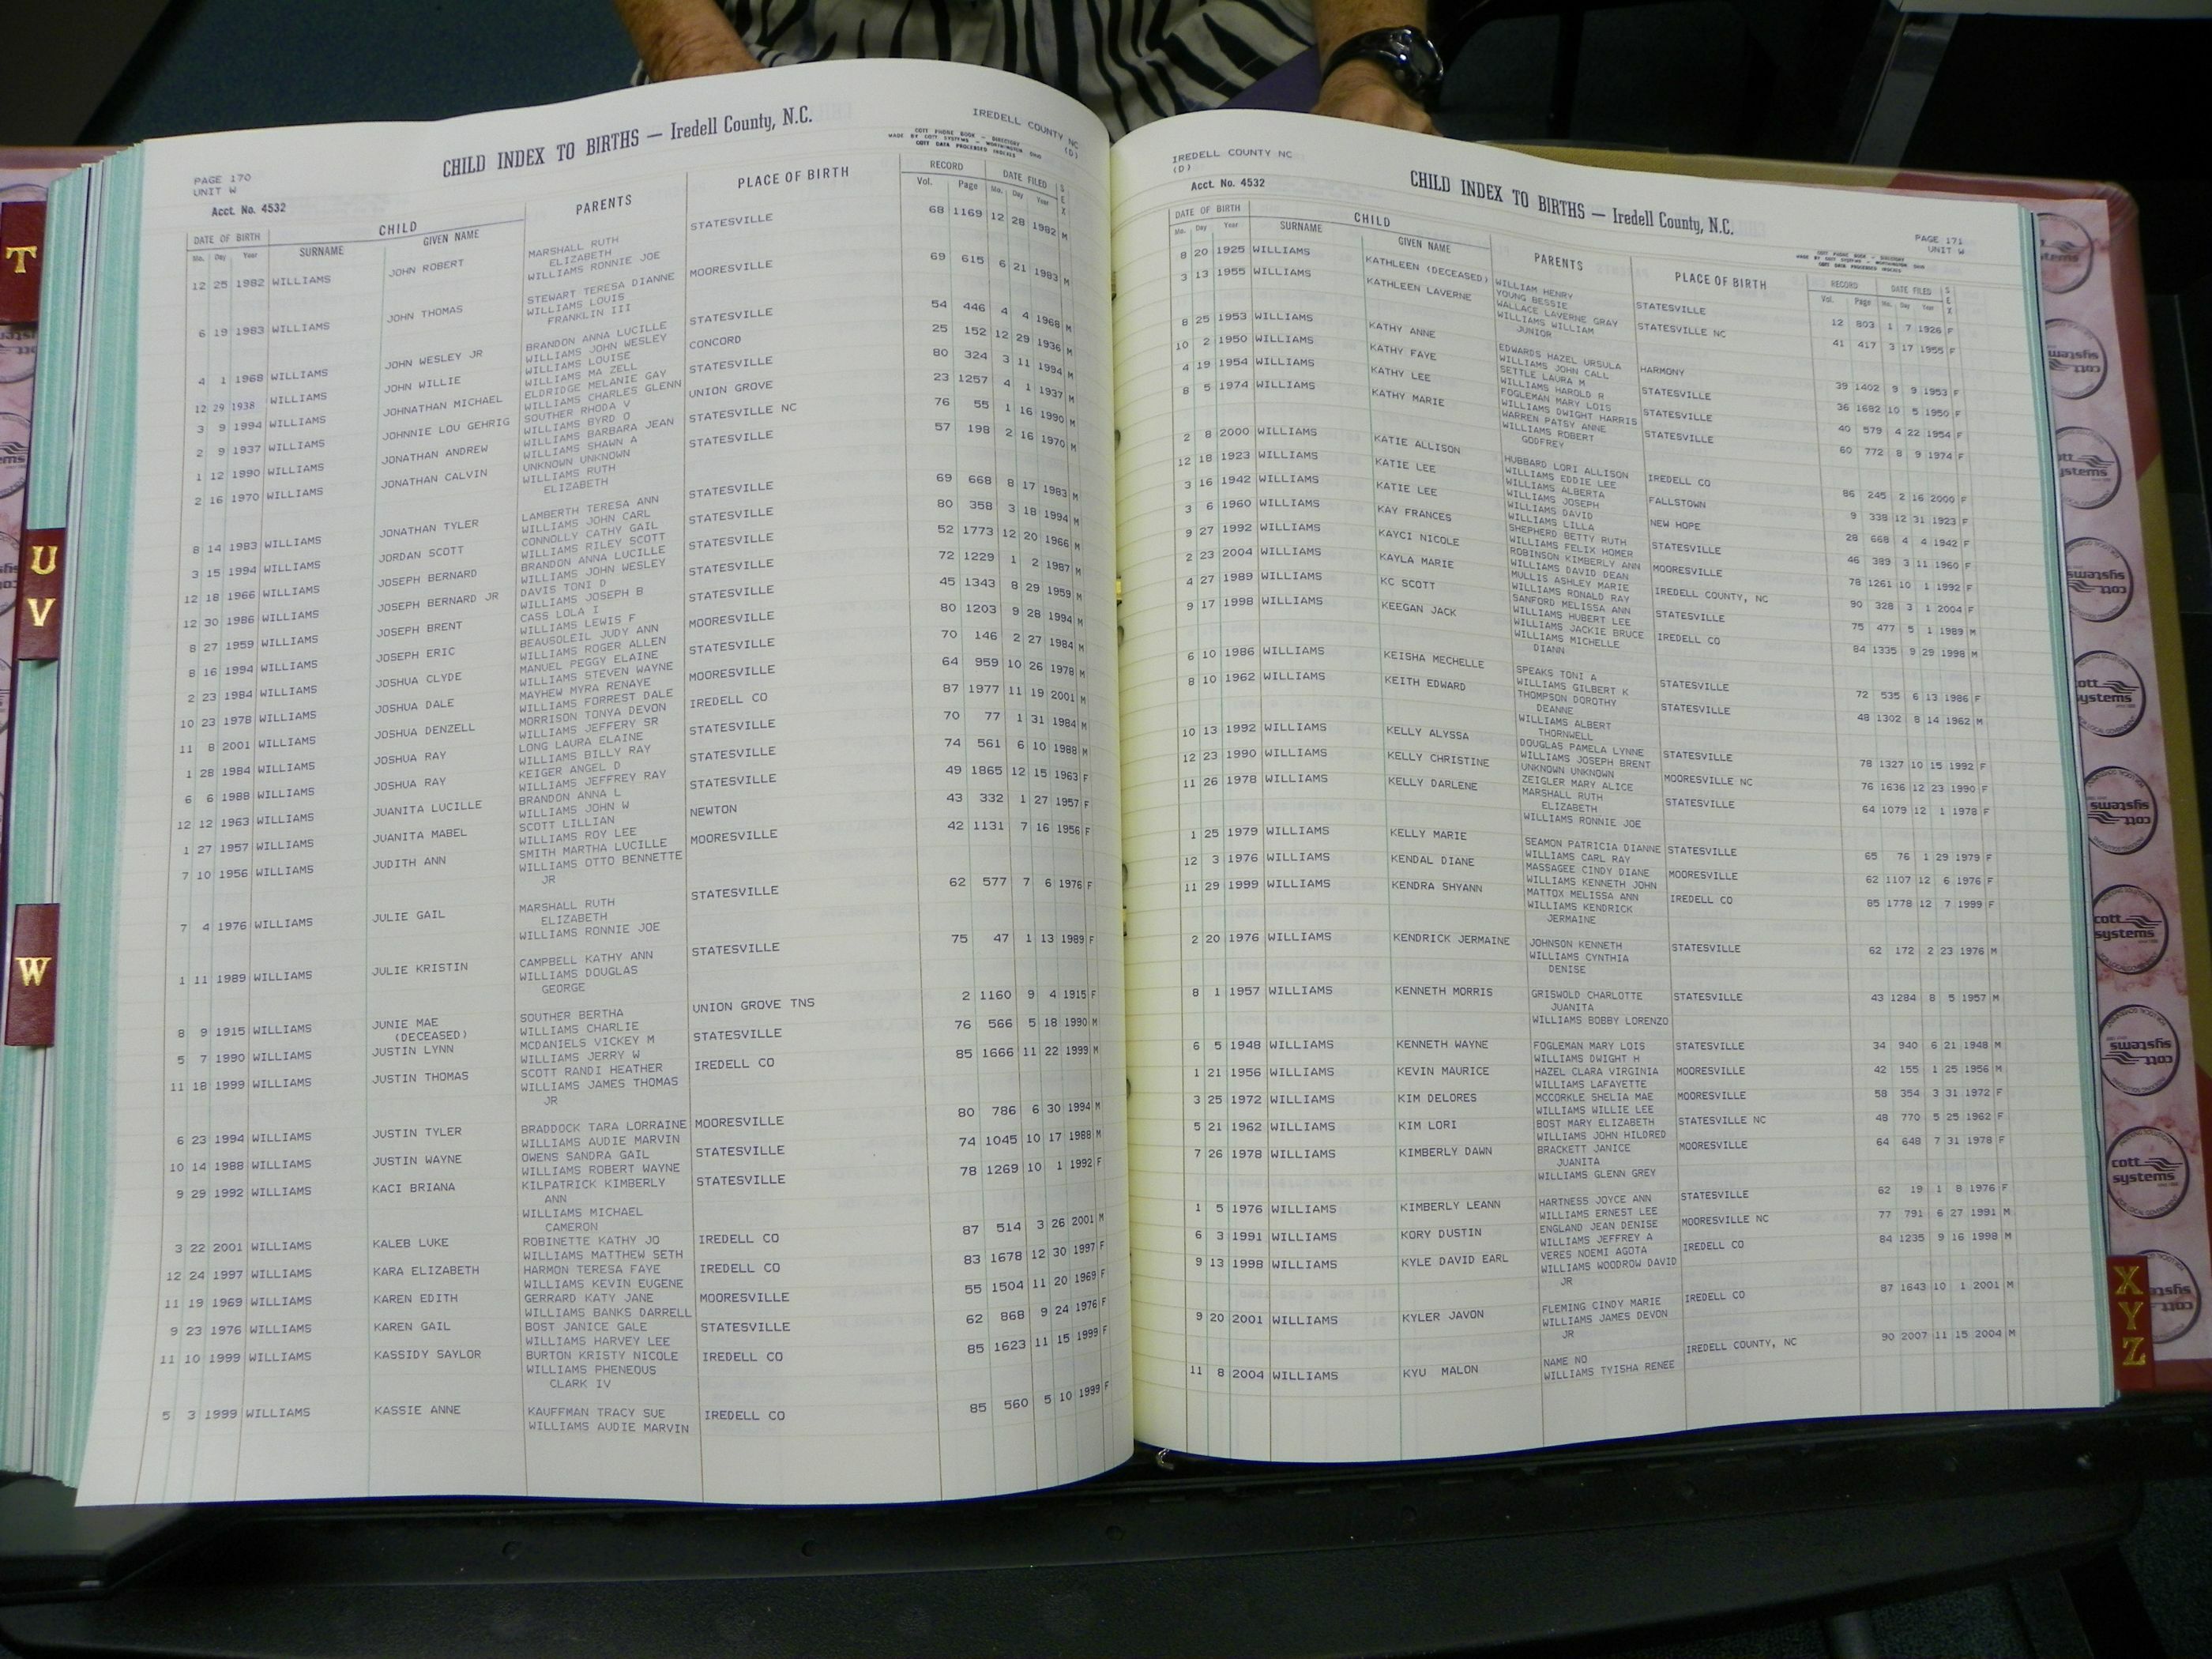 T
U
V
W
PAGE 170
UNIT W
CHILD INDEX TO BIRTHS — Iredell County, N.C.
IREDELL COUNTY NC
(D)
COTT PHONE BOOK - DIRECTORY
MADE BY COTT SYSTEMS - WORTHINGTON OHIO
COTT DATA PROCESSED INDEXES
Acct. No. 4532
DATE OF BIRTH CHILD PARENTS PLACE OF BIRTH RECORD DATE FILED SEX
Mo. Day Year SURNAME GIVEN NAME Vol. Page Mo. Day Year
12 25 1982 WILLIAMS JOHN ROBERT MARSHALL RUTH STATESVILLE 68 1169 12 28 1982 M
ELIZABETH
WILLIAMS RONNIE JOE
6 19 1983 WILLIAMS JOHN THOMAS STEWART TERESA DIANNE MOORESVILLE 69 615 6 21 1983 M
WILLIAMS LOUIS
FRANKLIN III
4 1 1968 WILLIAMS JOHN WESLEY JR BRANDON ANNA LUCILLE STATESVILLE 54 446 4 4 1968 M
WILLIAMS JOHN WESLEY
12 29 1938 WILLIAMS JOHN WILLIE WILLIAMS LOUISE CONCORD 25 152 12 29 1936 M
WILLIAMS MA ZELL
3 9 1994 WILLIAMS JOHNATHAN MICHAEL ELDRIDGE MELANIE GAY STATESVILLE 80 324 3 11 1994 M
WILLIAMS CHARLES GLENN
2 9 1937 WILLIAMS JOHNNIE LOU GEHRIG SOUTHER RHODA V UNION GROVE 23 1257 4 1 1937 M
WILLIAMS BYRD O
1 12 1990 WILLIAMS JONATHAN ANDREW WILLIAMS BARBARA JEAN STATESVILLE NC 76 55 1 16 1990 M
WILLIAMS SHAWN A
2 16 1970 WILLIAMS JONATHAN CALVIN UNKNOWN UNKNOWN STATESVILLE 57 198 2 16 1970 M
WILLIAMS RUTH
ELIZABETH
8 14 1983 WILLIAMS JONATHAN TYLER LAMBERTH TERESA ANN STATESVILLE 69 668 8 17 1983 M
WILLIAMS JOHN CARL
3 15 1994 WILLIAMS JORDAN SCOTT CONNOLLY CATHY GAIL STATESVILLE 80 358 3 18 1994 M
WILLIAMS RILEY SCOTT
12 18 1966 WILLIAMS JOSEPH BERNARD BRANDON ANNA LUCILLE STATESVILLE 52 1773 12 20 1966 M
WILLIAMS JOHN WESLEY
12 30 1986 WILLIAMS JOSEPH BERNARD JR DAVIS TONI D STATESVILLE 72 1229 1 2 1987 M
WILLIAMS JOSEPH B
8 27 1959 WILLIAMS JOSEPH BRENT CASS LOLA I STATESVILLE 45 1343 8 29 1959 M
WILLIAMS LEWIS F
8 16 1994 WILLIAMS JOSEPH ERIC BEAUSOLEIL JUDY ANN MOORESVILLE 80 1203 9 28 1994 M
WILLIAMS ROGER ALLEN
2 23 1984 WILLIAMS JOSHUA CLYDE MANUEL PEGGY ELAINE STATESVILLE 70 146 2 27 1984 M
WILLIAMS STEVEN WAYNE
10 23 1978 WILLIAMS JOSHUA DALE MAYHEW MYRA RENAYE MOORESVILLE 64 959 10 26 1978 M
WILLIAMS FORREST DALE
11 8 2001 WILLIAMS JOSHUA DENZELL MORRISON TONYA DEVON IREDELL CO 87 1977 11 19 2001 M
WILLIAMS JEFFERY SR
1 28 1984 WILLIAMS JOSHUA RAY LONG LAURA ELAINE STATESVILLE 70 77 1 31 1984 M
WILLIAMS BILLY RAY
6 6 1988 WILLIAMS JOSHUA RAY KEIGER ANGEL D STATESVILLE 74 561 6 10 1988 M
WILLIAMS JEFFREY RAY
12 12 1963 WILLIAMS JUANITA LUCILLE BRANDON ANNA L STATESVILLE 49 1865 12 15 1963 F
WILLIAMS JOHN W
1 27 1957 WILLIAMS JUANITA MABEL SCOTT LILLIAN NEWTON 43 332 1 27 1957 F
WILLIAMS ROY LEE
7 10 1956 WILLIAMS JUDITH ANN SMITH MARTHA LUCILLE MOORESVILLE 42 1131 7 16 1956 F
WILLIAMS OTTO BENNETTE
JR
7 4 1976 WILLIAMS JULIE GAIL MARSHALL RUTH STATESVILLE 62 577 7 6 1976 F
ELIZABETH
WILLIAMS RONNIE JOE
1 11 1989 WILLIAMS JULIE KRISTIN CAMPBELL KATHY ANN STATESVILLE 75 47 1 13 1989 F
WILLIAMS DOUGLAS
GEORGE
8 9 1915 WILLIAMS JUNIE MAE SOUTHER BERTHA UNION GROVE TNS 2 1160 9 4 1915 F
(DECEASED) WILLIAMS CHARLIE
5 7 1990 WILLIAMS JUSTIN LYNN MCDANIELS VICKEY M STATESVILLE 76 566 5 18 1990 M
WILLIAMS JERRY W
11 18 1999 WILLIAMS JUSTIN THOMAS SCOTT RANDI HEATHER IREDELL CO 85 1666 11 22 1999 M
WILLIAMS JAMES THOMAS
JR
6 23 1994 WILLIAMS JUSTIN TYLER BRADDOCK TARA LORRAINE MOORESVILLE 80 786 6 30 1994 M
WILLIAMS AUDIE MARVIN
10 14 1988 WILLIAMS JUSTIN WAYNE OWENS SANDRA GAIL STATESVILLE 74 1045 10 17 1988 M
WILLIAMS ROBERT WAYNE
9 29 1992 WILLIAMS KACI BRIANA KILPATRICK KIMBERLY STATESVILLE 78 1269 10 1 1992 F
ANN
WILLIAMS MICHAEL
CAMERON
3 22 2001 WILLIAMS KALEB LUKE ROBINETTE KATHY JO IREDELL CO 87 514 3 26 2001 M
WILLIAMS MATTHEW SETH
12 24 1997 WILLIAMS KARA ELIZABETH HARMON TERESA FAYE IREDELL CO 83 1678 12 30 1997 F
WILLIAMS KEVIN EUGENE
11 19 1969 WILLIAMS KAREN EDITH GERRARD KATY JANE MOORESVILLE 55 1504 11 20 1969 F
WILLIAMS BANKS DARRELL
9 23 1976 WILLIAMS KAREN GAIL BOST JANICE GALE STATESVILLE 62 868 9 24 1976 F
WILLIAMS HARVEY LEE
11 10 1999 WILLIAMS KASSIDY SAYLOR BURTON KRISTY NICOLE IREDELL CO 85 1623 11 15 1999 F
WILLIAMS PHENEOUS
CLARK IV
5 3 1999 WILLIAMS KASSIE ANNE KAUFFMAN TRACY SUE IREDELL CO 85 560 5 10 1999 F
WILLIAMS AUDIE MARVIN
IREDELL COUNTY NC
(D)
Acct. No. 4532
CHILD INDEX TO BIRTHS — Iredell County, N.C.
PAGE 171
UNIT W
COTT PHONE BOOK - DIRECTORY
MADE BY COTT SYSTEMS - WORTHINGTON OHIO
COTT DATA PROCESSED INDEXES
DATE OF BIRTH CHILD PARENTS PLACE OF BIRTH RECORD DATE FILED SEX
Mo. Day Year SURNAME GIVEN NAME Vol. Page Mo. Day Year
8 20 1925 WILLIAMS KATHLEEN (DECEASED) WILLIAM HENRY STATESVILLE 12 803 1 7 1926 F
YOUNG BESSIE
3 13 1955 WILLIAMS KATHLEEN LAVERNE WALLACE LAVERNE GRAY STATESVILLE NC 41 417 3 17 1955 F
WILLIAMS WILLIAM
JUNIOR
8 25 1953 WILLIAMS KATHY ANNE EDWARDS HAZEL URSULA HARMONY 39 1402 9 9 1953 F
WILLIAMS JOHN CALL
10 2 1950 WILLIAMS KATHY FAYE SETTLE LAURA M STATESVILLE 36 1682 10 5 1950 F
WILLIAMS HAROLD R
4 19 1954 WILLIAMS KATHY LEE FOGLEMAN MARY LOIS STATESVILLE 40 579 4 22 1954 F
WILLIAMS DWIGHT HARRIS
8 5 1974 WILLIAMS KATHY MARIE WARREN PATSY ANNE STATESVILLE 60 772 8 9 1974 F
WILLIAMS ROBERT
GODFREY
2 8 2000 WILLIAMS KATIE ALLISON HUBBARD LORI ALLISON IREDELL CO 86 245 2 16 2000 F
WILLIAMS EDDIE LEE
12 18 1923 WILLIAMS KATIE LEE WILLIAMS ALBERTA FALLSTOWN 9 338 12 31 1923 F
WILLIAMS JOSEPH
3 16 1942 WILLIAMS KATIE LEE WILLIAMS DAVID NEW HOPE 28 668 4 4 1942 F
WILLIAMS LILLA
3 6 1960 WILLIAMS KAY FRANCES SHEPHERD BETTY RUTH STATESVILLE 46 389 3 11 1960 F
WILLIAMS FELIX HOMER
9 27 1992 WILLIAMS KAYCI NICOLE ROBINSON KIMBERLY ANN MOORESVILLE 78 1261 10 1 1992 F
WILLIAMS DAVID DEAN
2 23 2004 WILLIAMS KAYLA MARIE MULLIS ASHLEY MARIE IREDELL COUNTY, NC 90 328 3 1 2004 F
WILLIAMS RONALD RAY
4 27 1989 WILLIAMS KC SCOTT SANFORD MELISSA ANN STATESVILLE 75 477 5 1 1989 M
WILLIAMS HUBERT LEE
9 17 1998 WILLIAMS KEEGAN JACK WILLIAMS JACKIE BRUCE IREDELL CO 84 1335 9 29 1998 M
WILLIAMS MICHELLE
DIANN
6 10 1986 WILLIAMS KEISHA MECHELLE SPEAKS TONI A STATESVILLE 72 535 6 13 1986 F
WILLIAMS GILBERT K
8 10 1962 WILLIAMS KEITH EDWARD THOMPSON DOROTHY STATESVILLE 48 1302 8 14 1962 M
DEANNE
WILLIAMS ALBERT
THORNWELL
10 13 1992 WILLIAMS KELLY ALYSSA DOUGLAS PAMELA LYNNE STATESVILLE 78 1327 10 15 1992 F
WILLIAMS JOSEPH BRENT
12 23 1990 WILLIAMS KELLY CHRISTINE UNKNOWN UNKNOWN MOORESVILLE NC 76 1636 12 23 1990 F
ZEIGLER MARY ALICE
11 26 1978 WILLIAMS KELLY DARLENE MARSHALL RUTH STATESVILLE 64 1079 12 1 1978 F
ELIZABETH
WILLIAMS RONNIE JOE
1 25 1979 WILLIAMS KELLY MARIE SEAMON PATRICIA DIANNE STATESVILLE 65 76 1 29 1979 F
WILLIAMS CARL RAY
12 3 1976 WILLIAMS KENDAL DIANE MASSAGEE CINDY DIANE MOORESVILLE 62 1107 12 6 1976 F
WILLIAMS KENNETH JOHN
11 29 1999 WILLIAMS KENDRA SHYANN MATTOX MELISSA ANN IREDELL CO 85 1778 12 7 1999 F
WILLIAMS KENDRICK
JERMAINE
2 20 1976 WILLIAMS KENDRICK JERMAINE JOHNSON KENNETH STATESVILLE 62 172 2 23 1976 M
WILLIAMS CYNTHIA
DENISE
8 1 1957 WILLIAMS KENNETH MORRIS GRISWOLD CHARLOTTE STATESVILLE 43 1284 8 5 1957 M
JUANITA
WILLIAMS BOBBY LORENZO
6 5 1948 WILLIAMS KENNETH WAYNE FOGLEMAN MARY LOIS STATESVILLE 34 940 6 21 1948 M
WILLIAMS DWIGHT H
1 21 1956 WILLIAMS KEVIN MAURICE HAZEL CLARA VIRGINIA MOORESVILLE 42 155 1 25 1956 M
WILLIAMS LAFAYETTE
3 25 1972 WILLIAMS KIM DELORES MCCORKLE SHELIA MAE MOORESVILLE 58 354 3 31 1972 F
WILLIAMS WILLIE LEE
5 21 1962 WILLIAMS KIM LORI BOST MARY ELIZABETH STATESVILLE NC 48 770 5 25 1962 F
WILLIAMS JOHN HILDRED
7 26 1978 WILLIAMS KIMBERLY DAWN BRACKETT JANICE MOORESVILLE 64 648 7 31 1978 F
JUANITA
WILLIAMS GLENN GREY
1 5 1976 WILLIAMS KIMBERLY LEANN HARTNESS JOYCE ANN STATESVILLE 62 19 1 8 1976 F
WILLIAMS ERNEST LEE
6 3 1991 WILLIAMS KORY DUSTIN ENGLAND JEAN DENISE MOORESVILLE NC 77 791 6 27 1991 M
WILLIAMS JEFFREY A
9 13 1998 WILLIAMS KYLE DAVID EARL VERES NOEMI AGOTA IREDELL CO 84 1235 9 16 1998 M
WILLIAMS WOODROW DAVID
JR
9 20 2001 WILLIAMS KYLER JAVON FLEMING CINDY MARIE IREDELL CO 87 1643 10 1 2001 M
WILLIAMS JAMES DEVON
JR
11 8 2004 WILLIAMS KYU MALON NAME NO IREDELL COUNTY, NC 90 2007 11 15 2004 M
WILLIAMS TYISHA RENEE
X
Y
Z
cott
systems